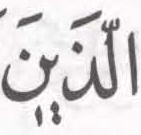 الَّذَيْنَ